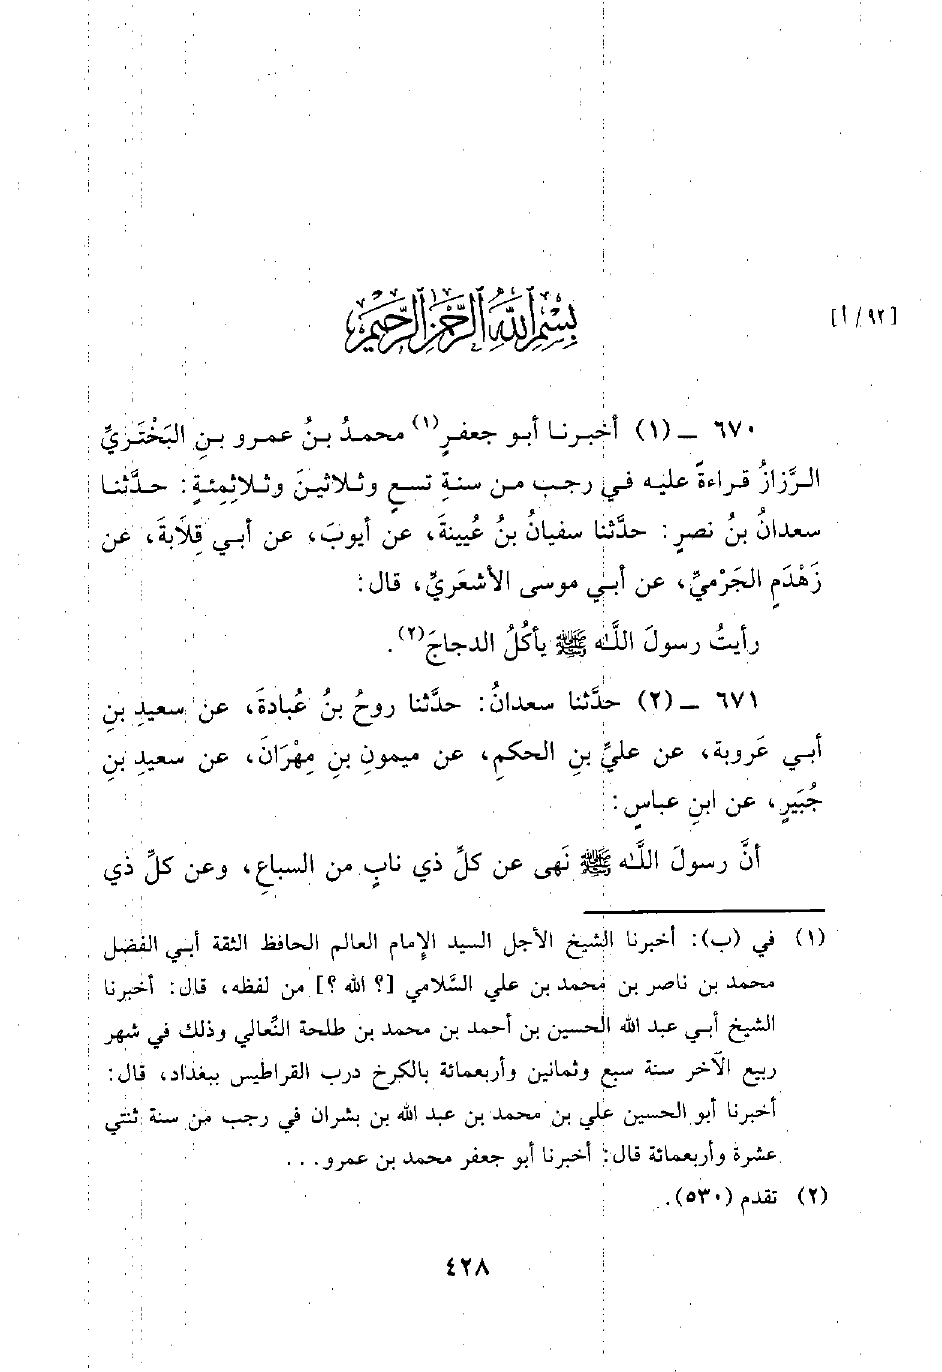 بسم الله الرحمن الرحيم
[٩٢/أ]
٦٧٠ ــ (١) أخبرنا أبو جعفرٍ(١) محمدُ بنُ عمرو بنِ البَخْتَريِّ
الرَّزازُ قراءةً عليه في رجب من سنةِ تسعٍ وثلاثينَ وثلاثِمِئةٍ: حدَّثنا
سعدانُ بنُ نصرٍ: حدَّثنا سفيانُ بنُ عُيينةَ، عن أيوبَ، عن أبي قِلَابةَ، عن
زَهْدَمٍ الجَرْميِّ، عن أبي موسى الأشعَريِّ، قال:
رأيتُ رسولَ اللَّـٰه ﷺ يأكُلُ الدجاجَ(٢).
٦٧١ ــ (٢) حدَّثنا سعدانُ: حدَّثنا روحُ بنُ عُبادةَ، عن سعيدِ بنِ
أبي عَروبة، عن عليِّ بنِ الحكمِ، عن ميمونِ بنِ مِهْرَانَ، عن سعيدِ بنِ
جُبَيرٍ، عن ابنِ عباسٍ:
أنَّ رسولَ اللَّـٰه ﷺ نَهى عن كلِّ ذي نابٍ من السباعِ، وعن كلِّ ذي
(١) في (ب): أخبرنا الشيخ الأجل السيد الإمام العالم الحافظ الثقة أبي الفضل
محمد بن ناصر بن محمد بن علي السَّلامي [؟ الله ؟] من لفظه، قال: أخبرنا
الشيخ أبي عبد الله الحسين بن أحمد بن محمد بن طلحة النِّعالي وذلك في شهر
ربيع الآخر سنة سبع وثمانين وأربعمائة بالكرخ درب القراطيس ببغداد، قال:
أخبرنا أبو الحسين علي بن محمد بن عبد الله بن بشران في رجب من سنة ثنتي
عشرة وأربعمائة قال: أخبرنا أبو جعفر محمد بن عمرو...
(٢) تقدم (٥٣٠).
٤٢٨